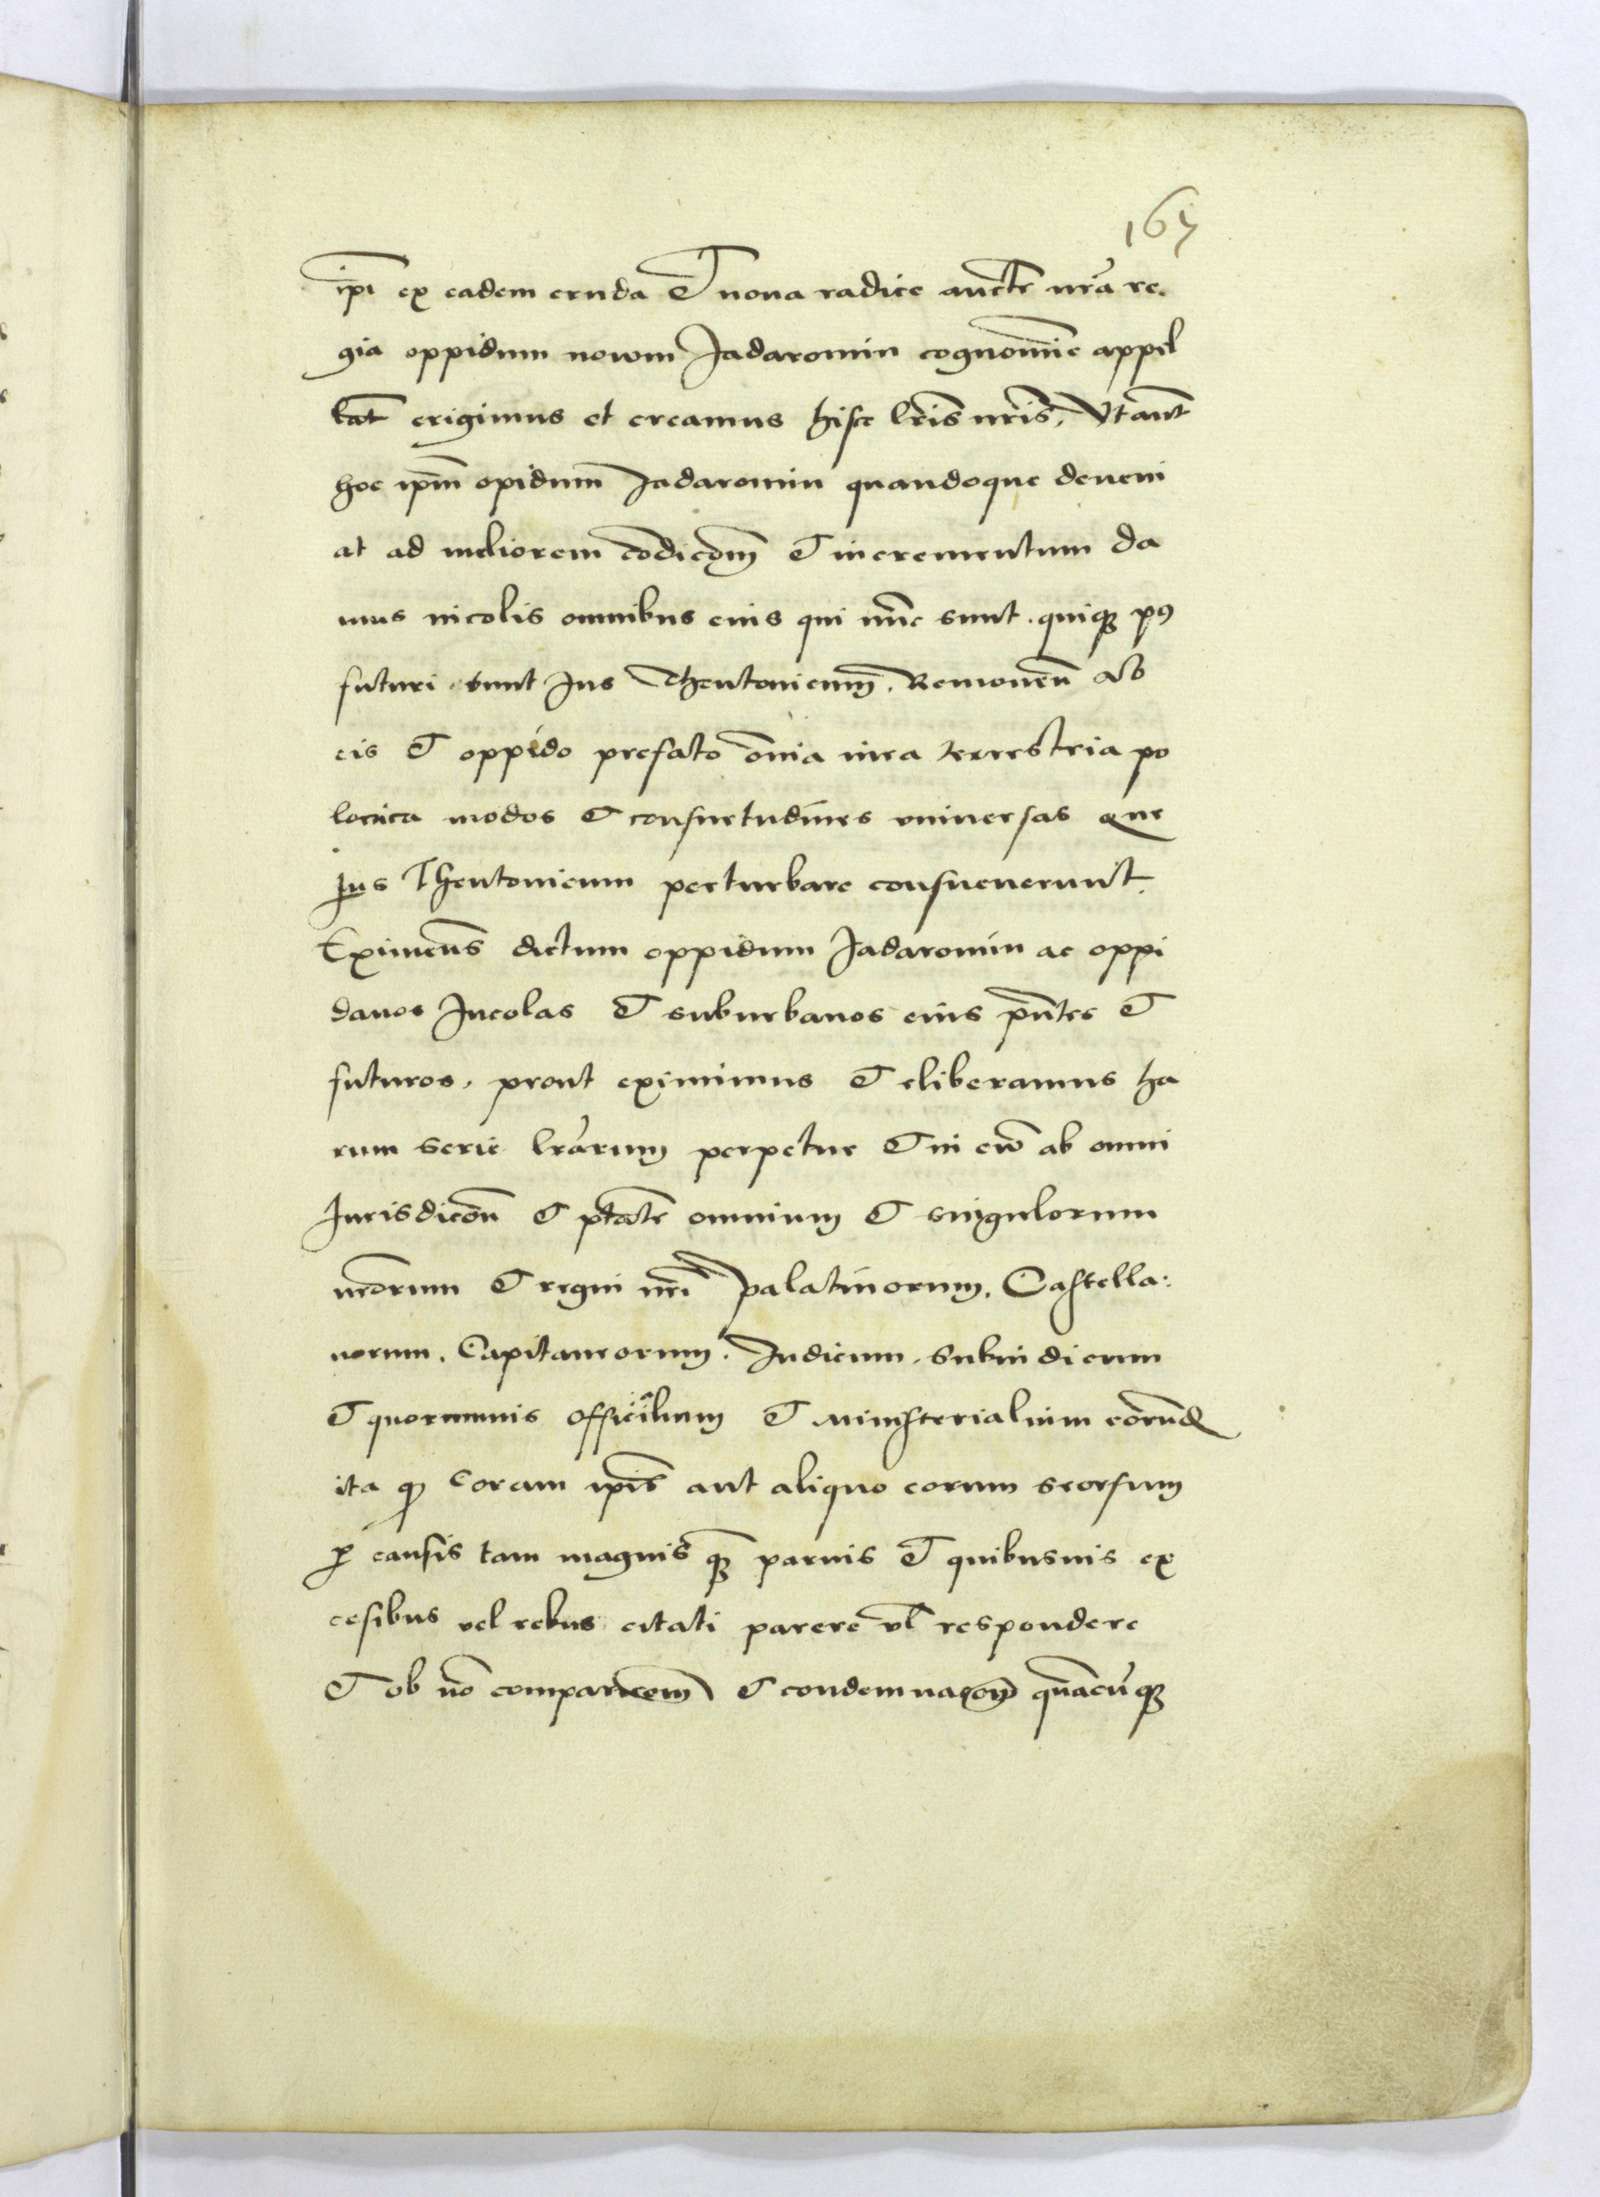 167
ipi ex eadem cruda & noua radice aucte nra re.
gia oppidum nowm Jadaromin cognomie appel
lat erigimus et creamus hisce lris nris, Vt aut
hoc ipm opidum Jadaromin quandoque deveni
at ad meliorem condicom & incrementum da
mus incolis omnibus eius qui nunc sunt. quiqz po9
futuri sunt Jus Theutonicum. Remouen Ab
eis & oppido prefato omia iura terrestria po
lonica modos & consuetudines vniuersas que
Jus Theutonicum perturbare consueuerunt.
Eximens dictum oppidum Jadaromin ac oppi
danos Incolas & suburbanos eius pntes &
futuros, prout eximimus & eliberamus ha
rum serie lrarum perpetue & in ewm ab omni
Jurisdicon & ptate omnium & singulorum
nrorum & regni nri Palatinorum. Castella:
norum. Capitaneorum. Judicum. Subiudicum
& quorumuis officialium & Ministerialium eorund
ita qz coram ipis aut aliquo eorum seorsum
p causis tam magnis qz paruis & quibusuis ex
cesibus vel rebus citati parere vl respondere
& ob no comparicom & condemnacom quacuqz